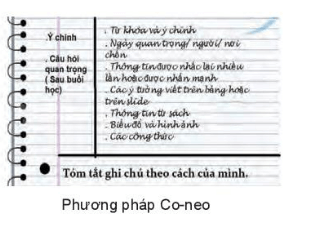 Ý chính
. Câu hỏi
quan trọng
( Sau buổi
học)
. Từ khóa và ý chính
. Ngày quan trọng/ người/ nơi
chốn
. Thông tin được nhắc lại nhiều
lần hoặc được nhấn mạnh
. Các ý tưởng viết trên bảng hoặc
trên slide
. Thông tin từ sách
. Biểu đồ và hình ảnh
. Các công thức
Tóm tắt ghi chú theo cách của mình.
Phương pháp Co-neo